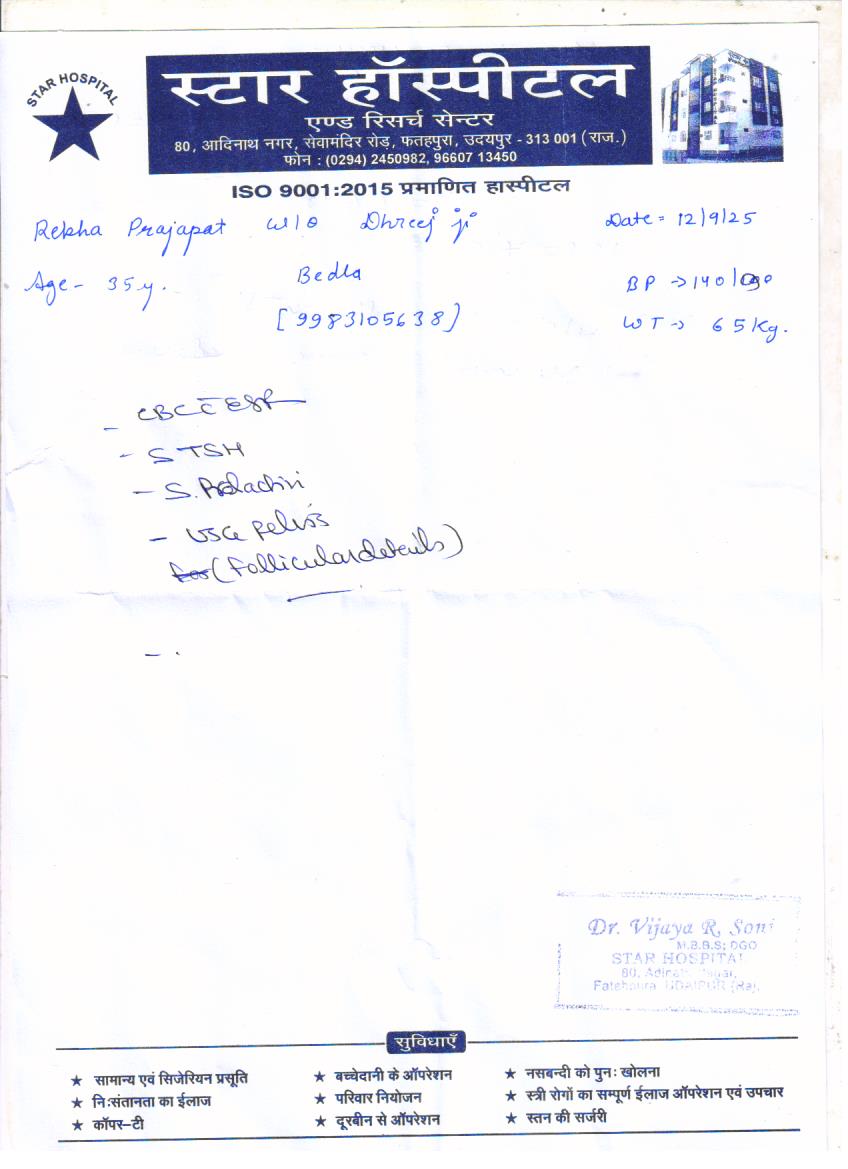 STAR HOSPITAL
स्टार हॉस्पीटल
एण्ड रिसर्च सेन्टर
80, आदिनाथ नगर, सेवामंदिर रोड़, फतहपुरा, उदयपुर - 313 001 (राज.)
फोन : (0294) 2450982, 96607 13450
ISO 9001:2015 प्रमाणित हास्पीटल
Rekha Prajapat W/O Dhreej ji Date = 12/9/25
Age - 35 y. Bedla BP → 140/
[9983105638] WT → 65 Kg.
- CBC C̄ ESR
- S TSH
- S. Prolactin
- USG Pelvis
(Follicular details)
Dr. Vijaya R. Soni
M.B.B.S; DGO
STAR HOSPITAL
80, Adinath Nagar,
Fatehpura UDAIPUR (Raj.
सुविधाएँ
★ सामान्य एवं सिजेरियन प्रसूति ★ बच्चेदानी के ऑपरेशन ★ नसबन्दी को पुनः खोलना
★ निःसंतानता का ईलाज ★ परिवार नियोजन ★ स्त्री रोगों का सम्पूर्ण ईलाज ऑपरेशन एवं उपचार
★ कॉपर-टी ★ दूरबीन से ऑपरेशन ★ स्तन की सर्जरी